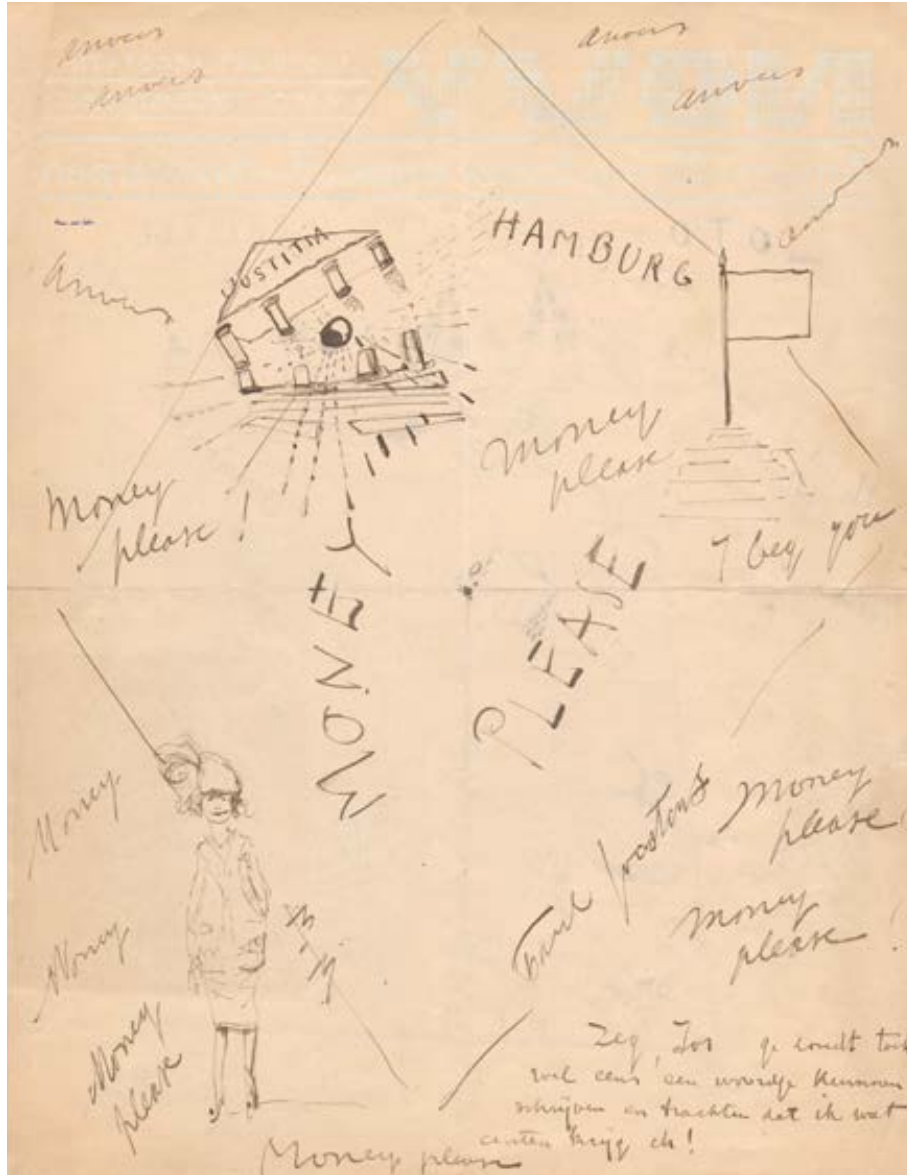 anvers
anvers
anvers
anvers
anvers
anvers
JUSTITIA
HAMBURG
Money
please!
Money
please
I beg you
MONEY
PLEASE
Money
Money
Money
please
Paul Joostens
Money
please!
Money
please!
Zeg, Jos ge zoudt toch
wel eens een woordje kunnen
schrijven en trachten dat ik wat
centen krijg eh!
Money please